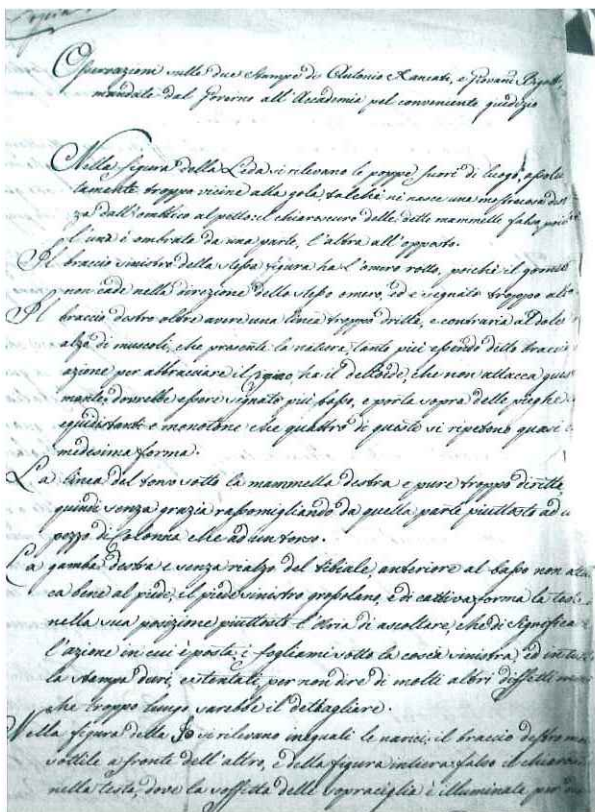 Copia
Osservazioni sulle due Stampe di Antonio Rancati, e Giovani Bigatti,
mandate dal Governo all'Accademia pel conveniente giudizio
Nella figura della Leda si rilevano le poppe fuori di luogo, assolu
tamente troppo vicine alla gola, talchè ne nasce una mostruosa
za dall'ombelico al petto: il chiaroscuro delle dette mammelle falso, poichè
l'una è ombrata da una parte, l'altra all'opposto.
Il braccio sinistro della stessa figura ha l'omero rotto, poichè il gomito
non cade nella direzione dello stesso omero, ed è segnato troppo alto
Il braccio destro oltre avere una linea troppo dritta, e contraria al dolce
alza di muscoli, che presenta la natura, tanto più essendo detto braccio
azione per abbracciare il Cigno, ha il deltoide, che non attacca
mente, dovrebbe essere segnato più basso, e porta sopra delle pieghe
equidistanti e monotone che quattro di queste si ripetono quasi
medesima forma.
La linea del torso sotto la mammella destra è pure troppo diritta,
quindi senza grazia rassomigliando da quella parte piuttosto ad u
pezzo di Colonna che ad un torso.
La gamba destra è senza rialzo del tibiale, anteriore al basso non attac
ca bene al piede, il piede sinistro grossolano, e di cattiva forma la testa
nella sua posizione piuttosto l'idea di ascoltare, che di significa
l'azione in cui è posta; i fogliami sotto la coscia sinistra, ed in tutta
la stampa duri, e stentati per non dire di molti altri diffetti
che troppo lungo sarebbe il dettagliare.
Nella figura della Io si rilevano ineguali le narici, il braccio destro
sottile a fronte dell'altro, e della figura intiera falso il chiaroscu
nella testa, dove la soffitta delle sopraciglia è illuminata per